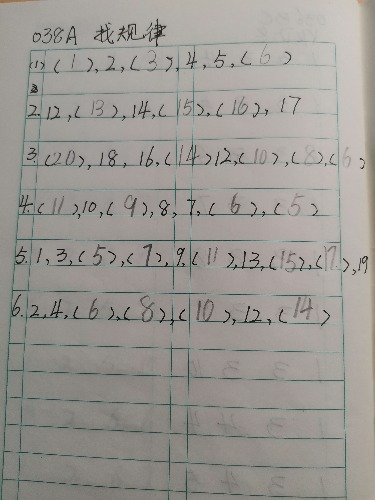 038A 找规律
(1)(1),2,(3),4,5,(6)
2.12,(13),14,(15),(16),17
3.(20),18,16,(14)12,(10),(8),(6)
4.(11),10,(9),8,7,(6),(5)
5.1,3,(5),(7),9,(11),13,(15),(17),19
6.2,4,(6),(8),(10),12,(14)